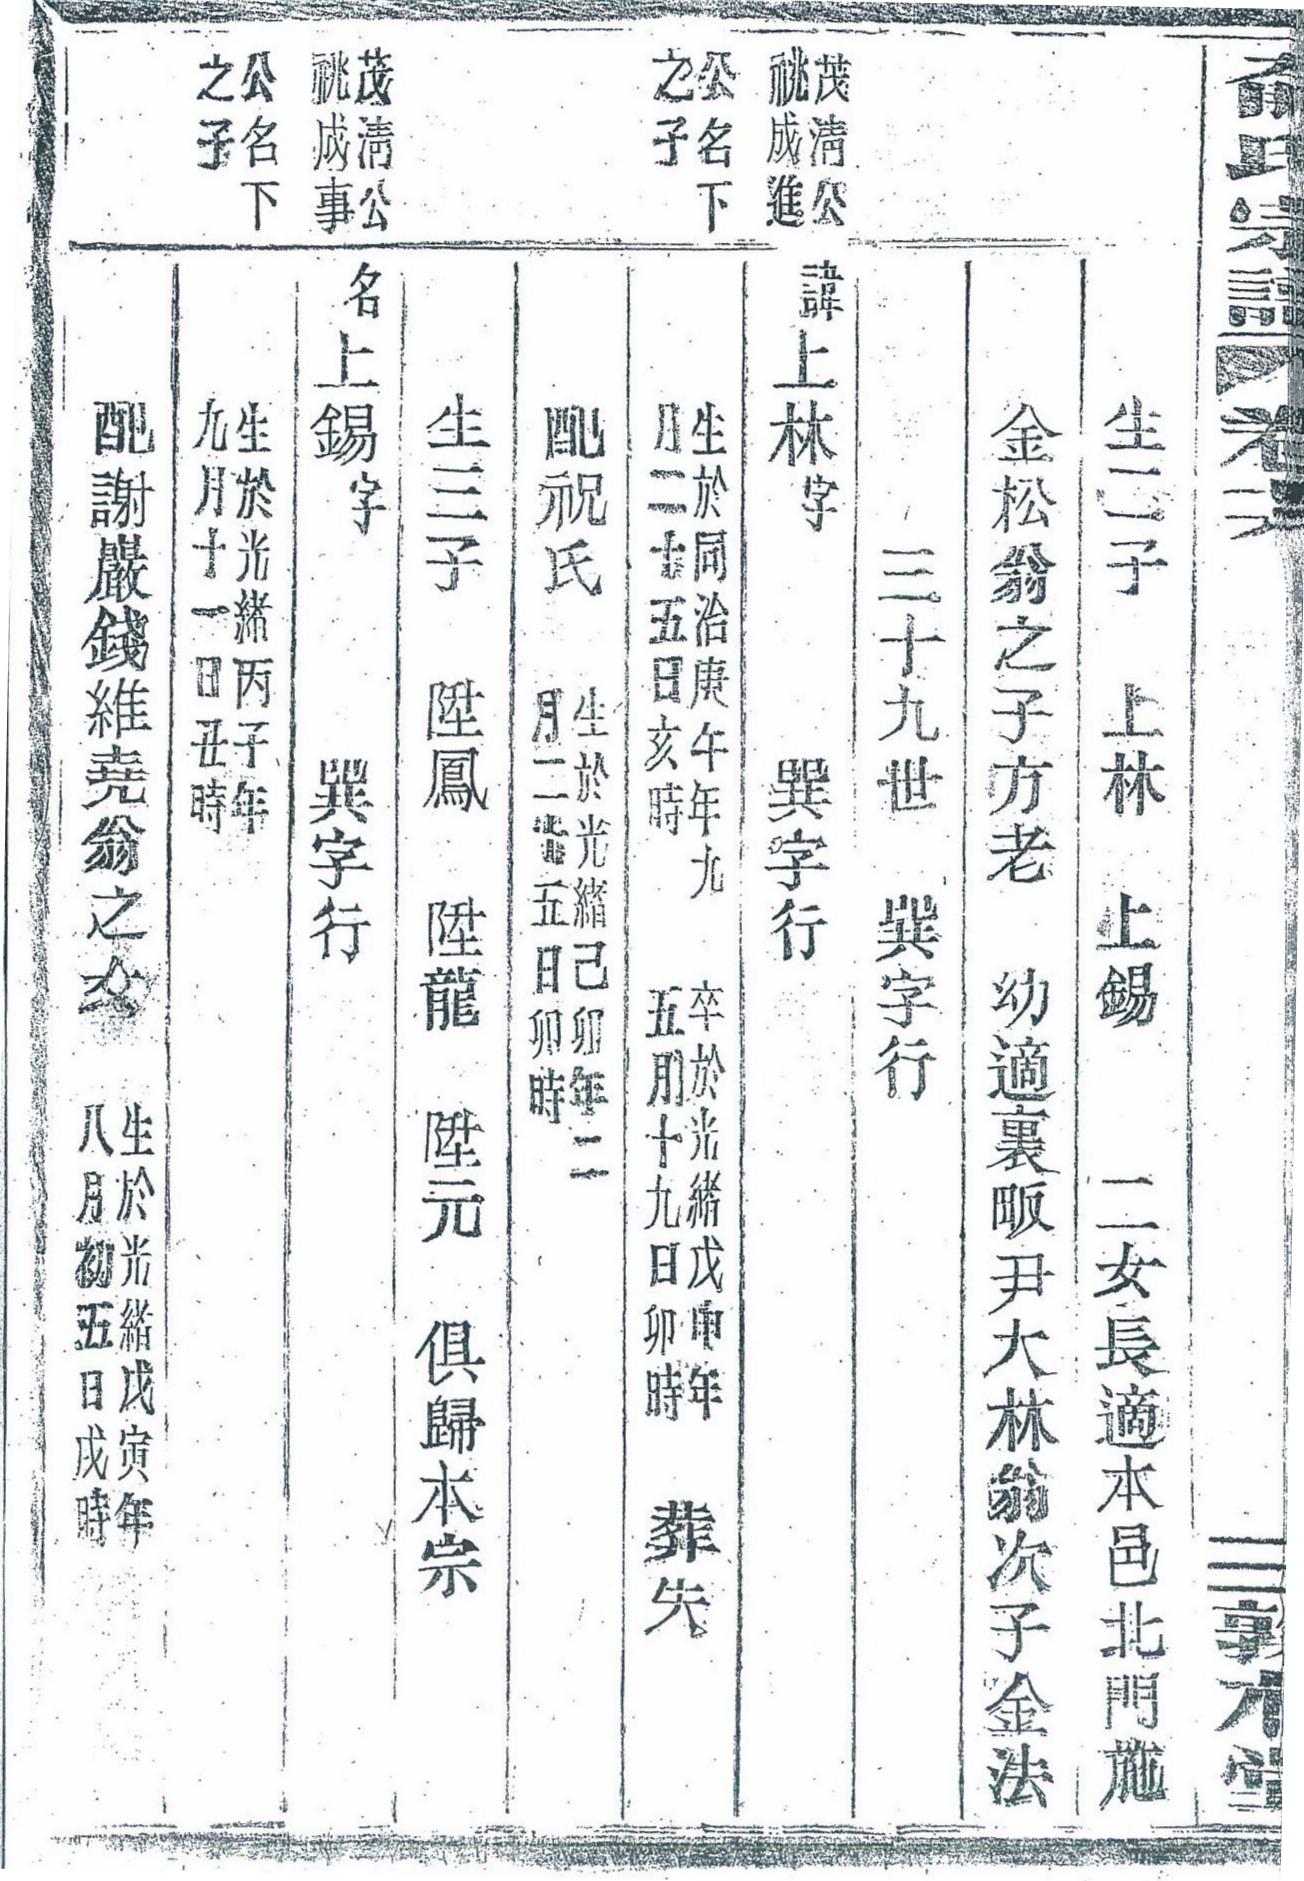 俞氏宗譜
卷六
三
敦本堂
生二子　上林　上錫　二女長適本邑北門施
金松翁之子方老　幼適裏畈尹大林翁次子金法
三十九世　巽字行
茂清公
祧成進
公名下
之子
諱上林字　巽字行
生於同治庚午年九
月二十五日亥時
卒於光緒戊申年
五月十九日卯時
葬失
配祝氏
生於光緒己卯年二
月二十五日卯時
生三子　陞鳳　陞龍　陞元　俱歸本宗
茂清公
祧成事
公名下
之子
名上錫字　巽字行
生於光緒丙子年
九月十一日丑時
配謝巖錢維堯翁之女
生於光緒戊寅年
八月初五日戌時